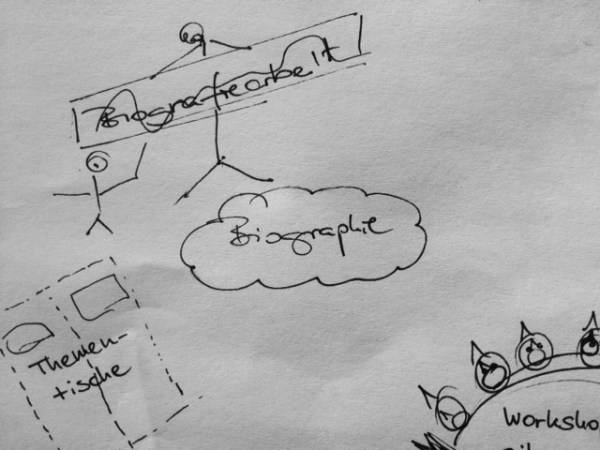 Biografiearbeit
Biographie
Themen-
tische
Worksho